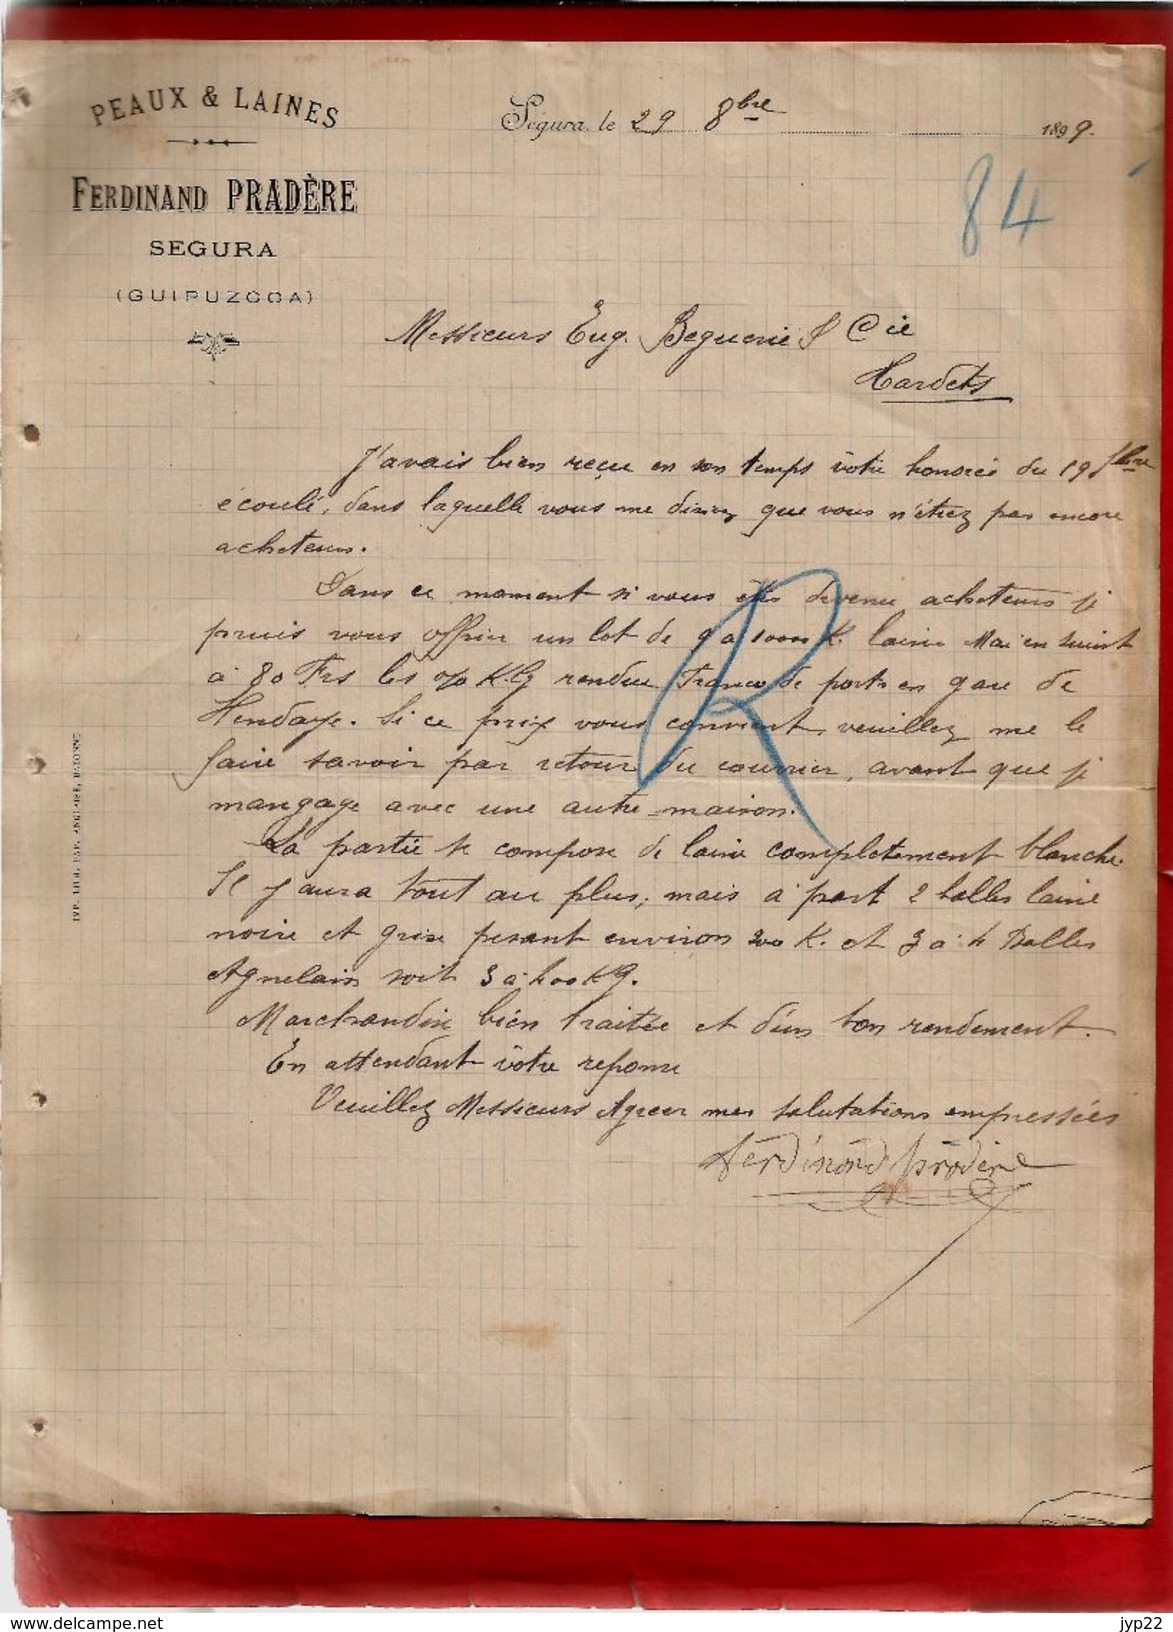 PEAUX & LAINES
FERDINAND PRADÈRE
SEGURA
(GUIPUZCOA)
Segura, le 29 8bre 1899.
84
Messieurs Eug. Beguerie & Cie
Tardets
J'avais bien reçue en son temps vôtre honorée du 19
écoulé, dans laquelle vous me disiez que vous n'étiez pas encore
acheteurs.
Dans ce moment si vous êtes devenu acheteurs je
puis vous offrir un lot de 9 a 10000 K. laine Mai en suint
à 80 Frs les % K.g rendue Franco de ports en gare de
Hendaye. Si ce prix vous convient, veuillez me le
faire savoir par retour du courrier, avant que je
m'angage avec une autre maison.
La partie se compose de laine completement blanche.
Il y aura tout au plus, mais à part 2 balles laine
noire et grise pesant environ 200 K. et 3 a 4 Balles
Agnelain soit 3 a 400 Kg.
Marchandise bien traitée et d'un bon rendement.
En attendant vôtre reponse
Veuillez Messieurs Agreer mes salutations empressées
Ferdinand Pradère
R
TYP. LITH. PAP. ANGLAISE, BAYONNE
www.delcampe.net
jyp22